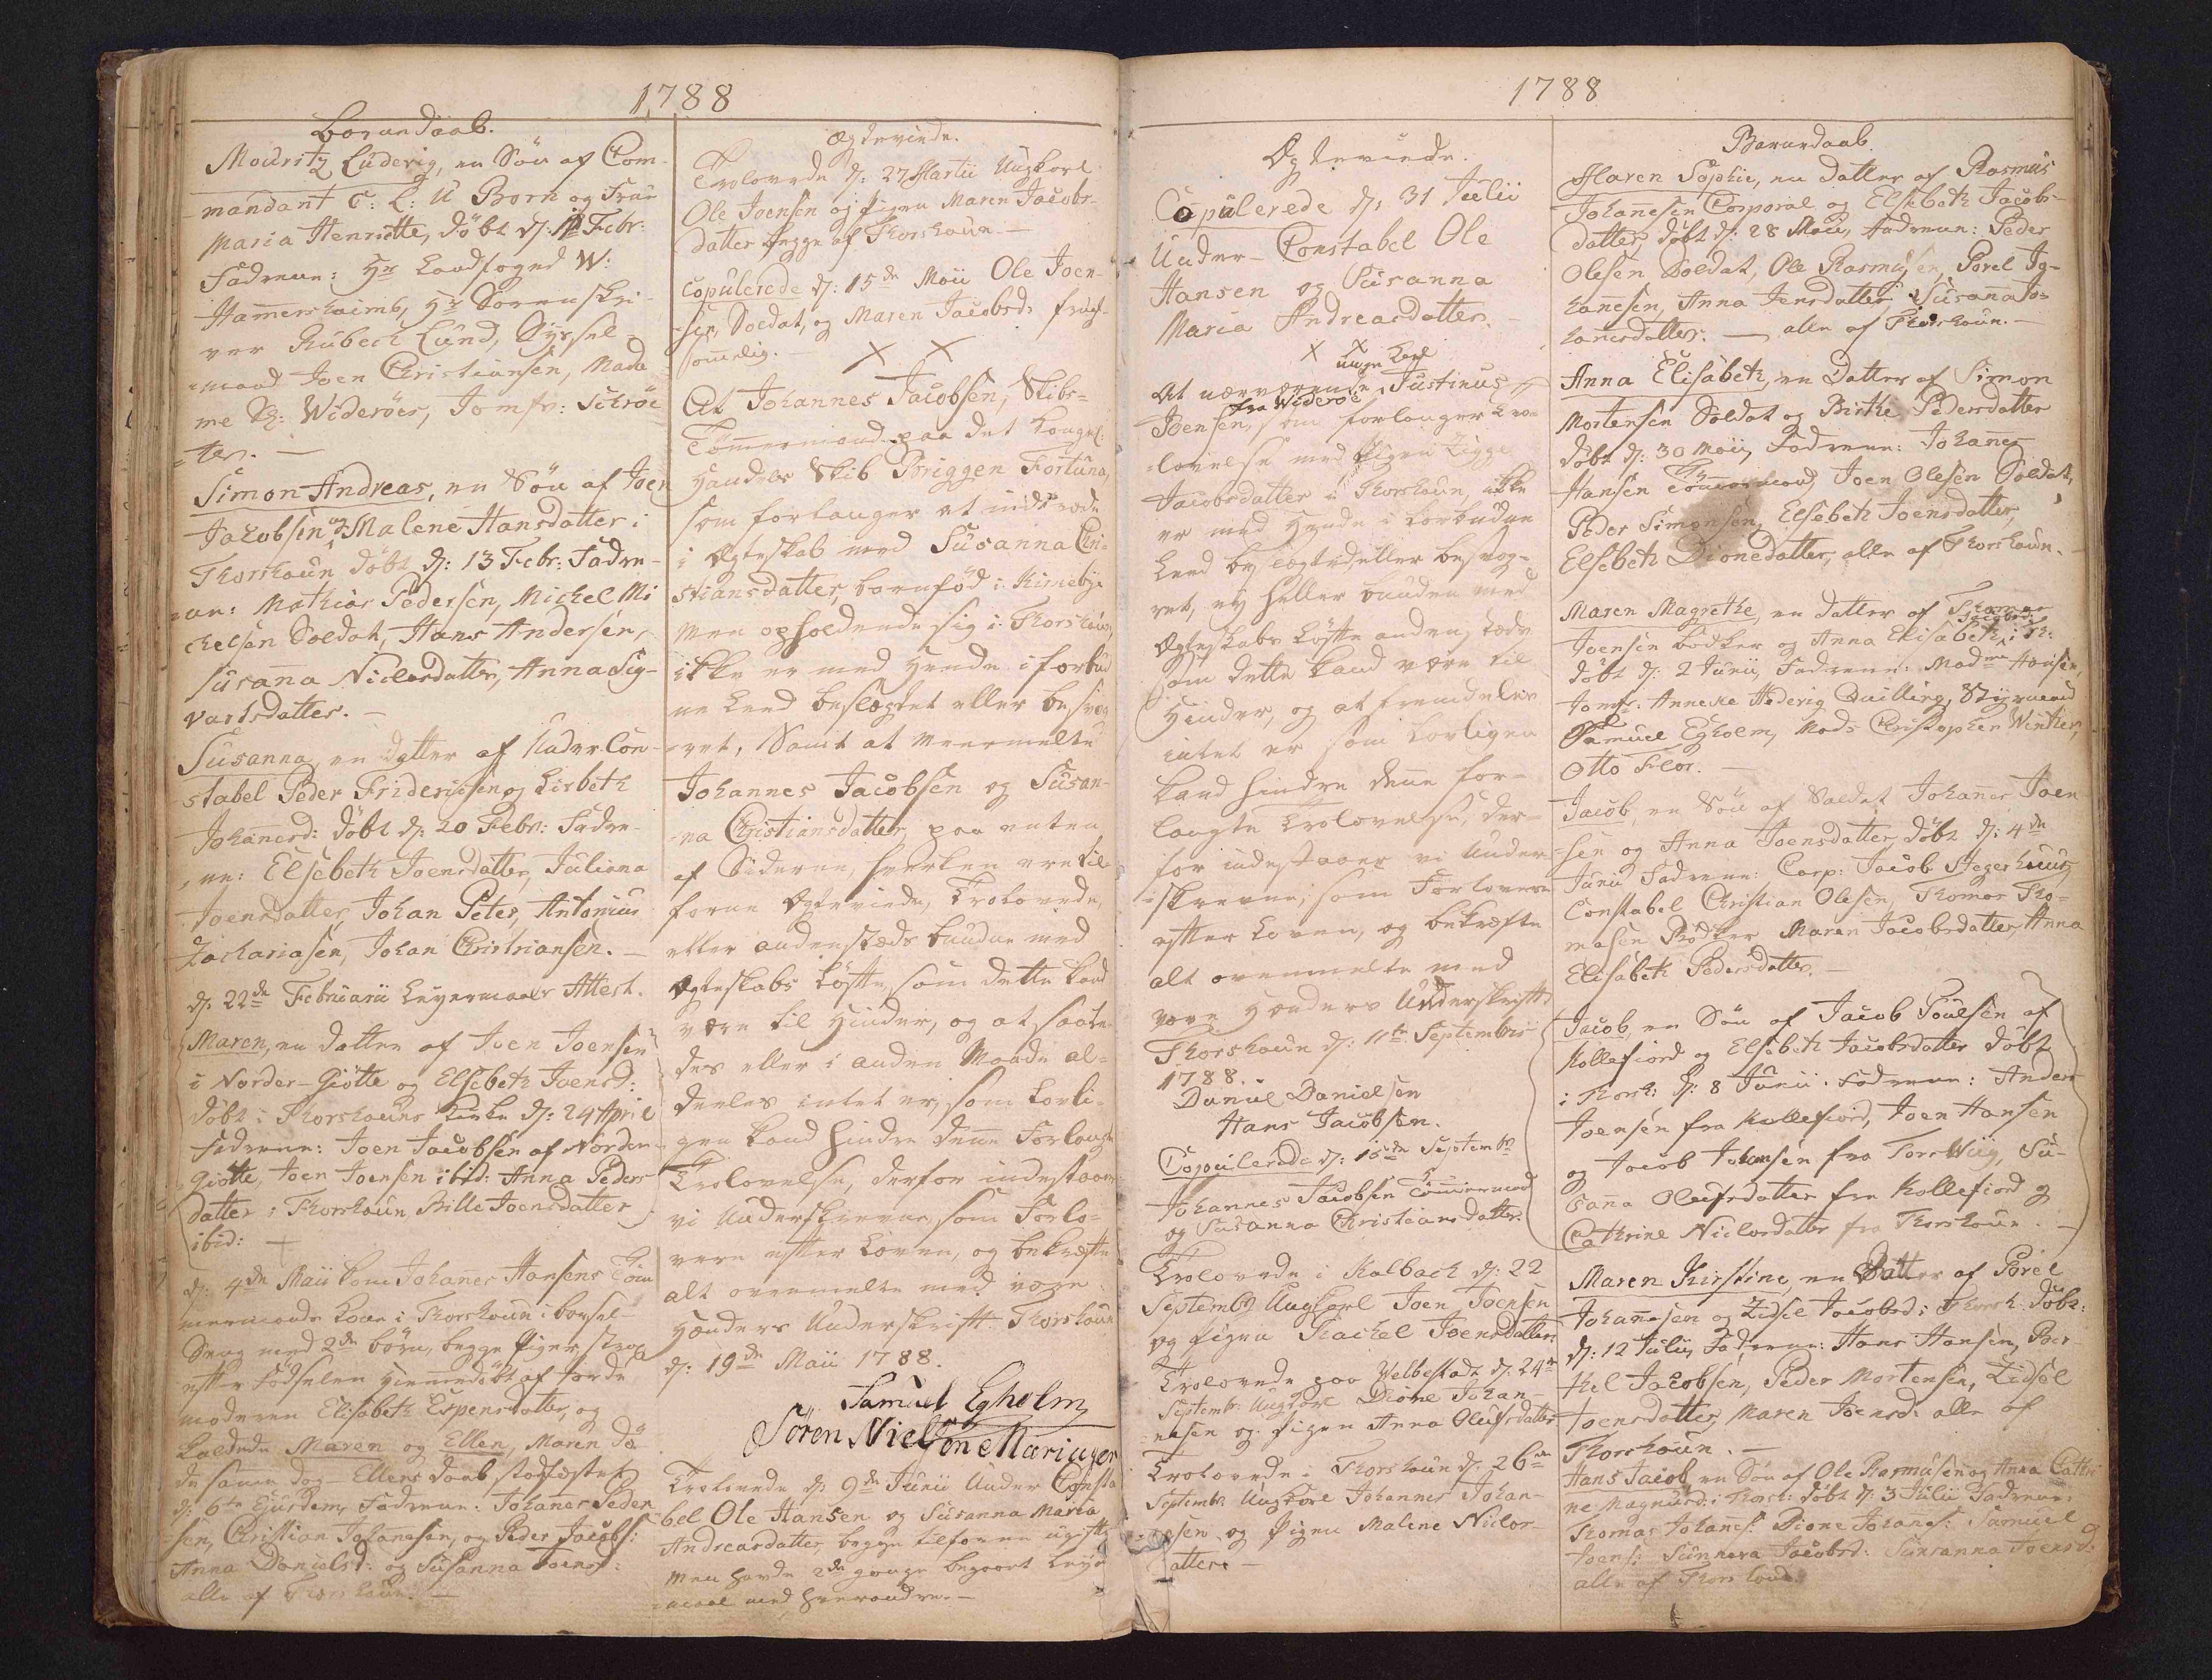 1788
Barnedaab.
Mouritz Luderig, en Søn af Com-
mandant C: L: U Born og Frue
Maria Henriette, døbt d: Febr:
Faddrene: Hr Landfoged W:
Hamershaimb, Hr Sorenskri-
ver Rubech Lund, Syssel-
mand Joen Christiansen, Mada
me Widerøes, Jomfr: Schrøe
ter. —
Simon Andreas, en Søn af Joen
Jacobsen og Malene Hansdatter i
Thorshaun døbt d: 13 Febr: Fadre-
ne: Mathias Pedersen, Michel Mi
chelsen Soldat, Hans Andersen,
Susanna Nielsdatter, Anna Sig-
vartsdatter. —
Susanna, en datter af Under Con-
stabel Peder Friderichsen og Lisbeth
Johanesd: døbt d: 20 Febr: Fadre-
ne: Elsebeth Joensdatter, Juliana
Joensdatter, Johan Peter, Antonius
Zachariasen, Johan Christiansen. —
d: 22de Februarii Leyermaals Attest.
Maren, en datter af Joen Joensen
i Norder-Giøtte og Elsebeth Joensd:
døbt i Thorshauns Kirke d: 24 April
Fadrene: Joen Jacobsen af Norder
Giøtte, Joen Joensen ibid: Anna Peders
datter i Thorshaun, Bille Joensdatter
ibid: —
d: 4de Maii kom Johanes Hansens Tøm
mermands Kone i Thorshaun i barsel-
Seng med 2de børn, begge Piger, strax
efter Fødselen hiemmedøbt af Jorde
moderen Elisabeth Espensdatter, og
kaldede Maren og Ellen, Maren dø
de samme dag - Ellens daab stadfæstet
d: 6te Ejusdem, Fadrene: Johanes Peder
sen, Christian Johanesen, og Peder Jacobs:
Anna Danielsd: og Susanna Joensd:
alle af Thorshaun. —
Ægteviede.
Trolovede d: 27 Martii Ungkarl
Ole Joensen og Pigen Maren Jacobs-
datter begge af Thorshaun. —
Copulerede d: 15de Maii Ole Joen-
sen, Soldat, og Maren Jacobsd: frugt-
somelig. —
X X
At Johannes Jacobsen, Skibs-
Tømermand paa det Kongel:
Handels Skib Briggen Fortuna,
som forlanger at indtræde
i Ægteskab med Susanna Chri-
stiansdatter, barnfød i Kirkebye
men opholdende sig i Thorshaun,
ikke er med hende i forbud
ne Leed beslægtet eller besvog
ret, Samt at meermelte
Johannes Jacobsen og Susan-
na Christiansdatter, paa enten
af Siderne, hverken ere til
forne Ægteviede, Trolovede,
eller andenstæds bundne med
Ægteskabs Løfte, som dette kand
være til Hinder, og at saale-
des eller i anden Maade al-
deeles intet er, som lovli-
gen kand hindre dene Forlangte
Trolovelse, derfor indestaaer
vi Underskrevne, som Forlo-
vere efter Loven, og bekræfte
alt ovenmelte med vore
Hænders Underskrift. Thorshaun
d: 19de Maii 1788.
Samuel Egholm
Søren Nielsøne Mariager
Trolovede d: 9de Junii Under Consta
bel Ole Hansen og Susanna Maria
Andreasdatter, begge tilforne ugifte
men havde 2de gange begaaet Leyer
maal med hverandre. —
1788
Ægteviede.
Copulerede d: 31 Julii
Under-Constabel Ole
Hansen og Susanna
Maria Andreasdatter. —
X X
unge Karl
At nærværende Justinus
fra Widerøe
Joensen, som forlanger Tro-
lovelse med Pigen Zigge
Jacobsdatter i Thorshaun, ikke
er med Hende i forbudne
Leed beslægtet eller besvog-
ret, ey heller bunden med
Ægteskabs Løfte anden stæds
som dette kand være til
Hinder, og at fremdeles
intet er som lovligen
kand hindre dene for-
langte Trolovelse, der-
for indestaaer vi Under
skrevne, som Forlovere
efter Loven, og bekræfte
alt ovenmelte med
vore Hænders Underskrift
Thorshaun d: 11te Septembris
1788.
Daniel Danielsen
Hans Jacobsen.
Copulerede d: 15de Septembr
Johannes Jacobsen Tømermand
og Susanna Christiansdatter.
Trolovede i Kalbach d: 22
Septembr Ungkarl Joen Joensen
og Pigen Rachel Joensdatter
Trolovede paa Welbestadt d: 24de
Septembr: Ungkarl Dione Johan-
nesen og Pigen Anna Olufsdatter
Trolovede i Thorshaun d: 26de
Septembr. Ungkarl Johannes Johan-
nesen og Pigen Malene Niclas-
datter. —
Barnedaab.
Maren Sophie, en datter af Rasmus
Johanesen Corporal og Elsebeth Jacobs-
datter, døbt d: 28 Maii, Fadrene: Peder
Olesen Soldat, Ole Rasmusen, Porel Jo-
hanesen, Anna Jensdatter Susana Jo-
hanesdatter. — alle af Thorshaun. —
Anna Elisabeth, en Datter af Simon
Mortensen Soldat og Birthe Pedersdatter
døbt d: 30 Maii, Fadrene: Johanes
Hansen Tømermand, Joen Olesen Soldat,
Peder Simonsen, Elsebeth Joensdatter,
Elsebeth Dionedatter, alle af Thorshaun.
Maren Magrethe, en datter af Thomas
Joensen bødker og Anna Elisabeth i Th:
døbt d: 2 Junii, Fadrene: Madme Hansen,
Jomfr. Anneke Hederig Quilling, Styrmand
Samuel Egholm, Mads Christopher Winther,
Otto Flor. —
Jacob, en Søn af Soldat Johanes Joen-
sen og Anna Joensdatter, døbt d: 4de
Junii Fadrene: Corp: Jacob Hegerhuus,
Constabel Christian Olesen, Thomas Tho-
masen Bødker Maren Jacobsdatter, Anna
Elisabeth Pedersdatter. —
Jacob, en Søn af Jacob Poulsen af
Kollefiord og Elsebeth Jacobsdatter døbt
i Thorsh: d: 8 Junii. Fadrene: Anders
Joensen fra Kollefiord, Joen Hansen
og Jacob Johansen fra Torswiig, Su-
sana Olufsdatter fra Kollefiord og
Cathrine Niclasdatter fra Thorshaun. —
Maren Kirstine, en Datter af Porel
Johannesen og Zidsel Jacobsd: i Thorsh: døbt:
d: 12 Julii, Fadrene: Hans Hansen, Ber
thel Jacobsen, Peder Mortensen, Zidsel
Joensdatter, Maren Joensd: alle af
Thorshaun. —
Hans Jacob, en Søn af Ole Rasmusen og Anna Cathri
ne Magnusd: i Thorsh: døbt d: 3 Julii Fadrene:
Thomas Johanes: Dione Johanes: Samuel
Joens: Sunneva Jacobsd: Susanna Joensd:
alle af Thorshaun.